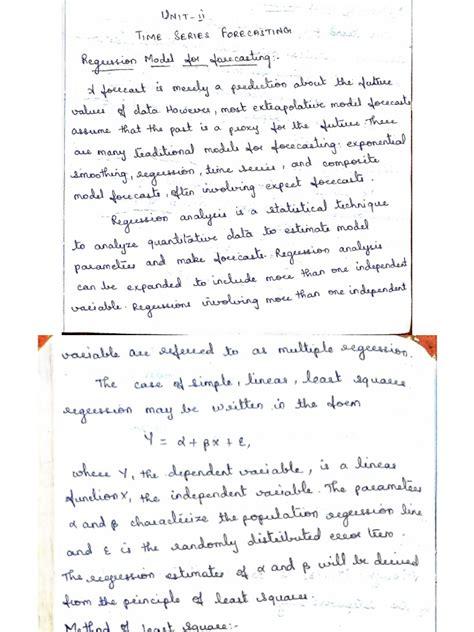 UNIT-ii
TIME SERIES FORECASTING
Regression Model for forecasting:-
A forecast is merely a prediction about the future
values of data. However, most extrapolative model forecasts
assume that the past is a proxy for the future. There
are many traditional models for forecasting: exponential
smoothing, regression, time series, and composite
model forecasts, often involving expert forecasts.
Regression analysis is a statistical technique
to analyze quantitative data to estimate model
parameters and make forecasts. Regression analysis
can be expanded to include more than one independent
variable. Regressions involving more than one independent
variable are referred to as multiple regression.
The case of simple, linear, least squares
regression may be written in the form
Y = α + βx + ε,
where Y, the dependent variable, is a linear
function X, the independent variable. The parameters
α and β characterize the population regression line
and ε is the randomly distributed error term.
The regression estimates of α and β will be derived
from the principle of least squares.
Method of least square:-